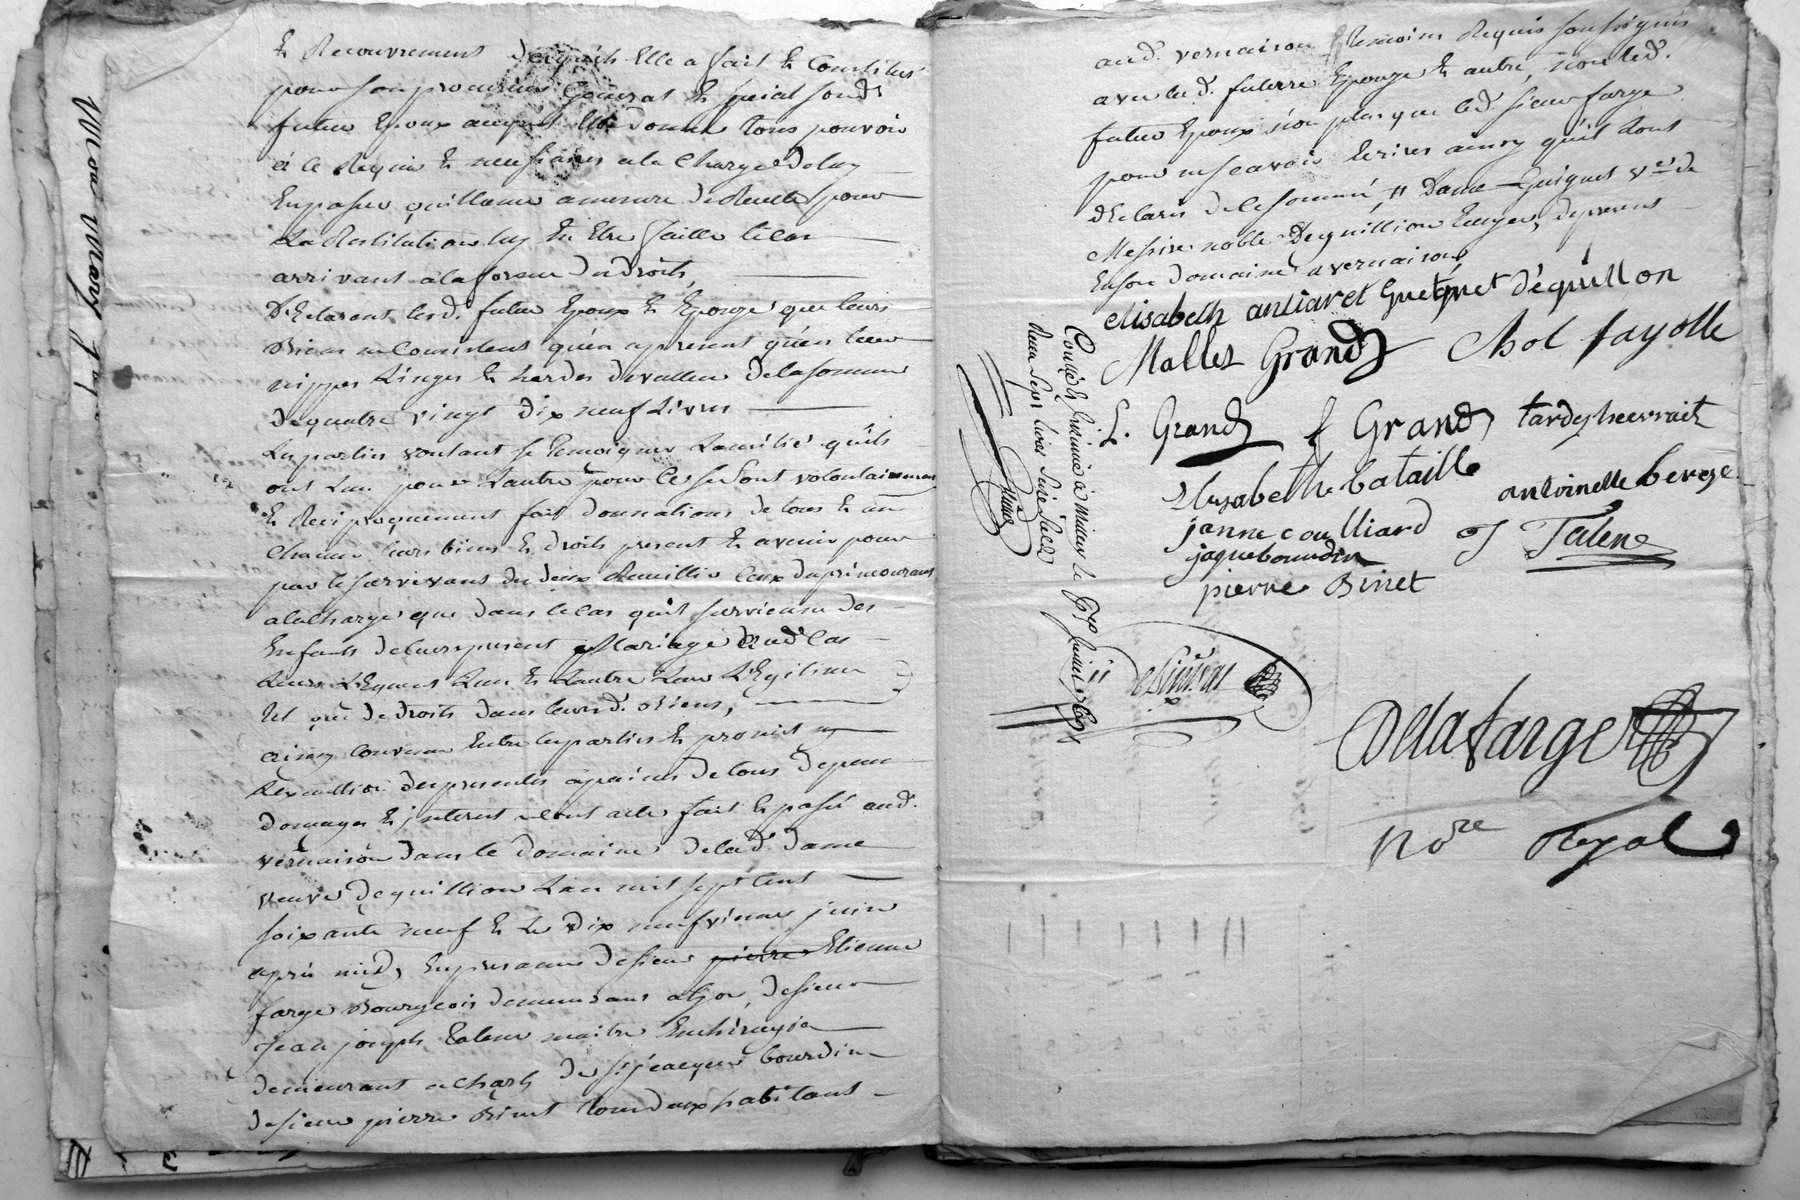 Et Recouvrement desquels Elle a fait Et Constitué
pour son procureur General Et special sond.
futur Epoux auquel Elle donne tous pouvoir
à ce Requis Et necessaires a la Charge de luy
En passer quittance a mesure de Recette pour
La Restitution luy En Etre faitte le cas
arrivant a la forme du droit,
Declarant lesd. futur Epoux Et Epouze que leurs
Biens ne Consistent quén apresent quén leur
nippes Linges Et hardes de valleur de la somme
de quatre vingt dix neuf Livres
Les parties voulant se temoigner Lamitié quils
ont Lun pour Lautre pour Ce se sont volontairement
Et Reciproquement fait donnations de tous Et un
chacun leurs biens Et droits present Et avenir pour
par le survivant des deux Recuillir Ceux du premourant
a la charge que dans le cas quil survienne des
Enfants de leur present Mariage aud. Cas
Leurs Leguent Lun Et Lautre Leur Légitime
tel que de droits dans leursd. Biens,
ainsy Convenu Entre les parties Et promis
Lexecution des presentes apeines de tous depens
domages Et interest dont acte fait Et passé aud.
vernaison dans le domaine de lad. Dame
veuve deguillion Lan mil sept Cent
soixante neuf Et Le dix neufvieme juin
après midy En presence de sieur pierre Etienne
farge Bourgeois demeurant a Lion, de sieur
Jean joseph talene maitre En chirurgie
demeurant a Charly de sr. jéacques bourdin
de sieur pierre Binet tous deux habitant
aud. vernaison temoins Requis soussignés
avec lad. future Epouze Et autre, non led.
futur Epoux non plus que led. sieur farge
pour ne scavoir Ecrires ainsy quil dont
déclaré de ce sommé, " Dame Guignet vve. de
Messire noble Deguillion Ecuyer, depresent
En son domaine a vernaison
elisabeth antiaret Guetgnet d'éguillon
Mallet Grand Chol fayolle
E. Grand f Grand tardy heervait
Elizabeth bataille antoinette berege
janne coulliard J Talene
jaque bourdin
pierre Binet
Controllé Et Insinué à Millery le juin 1769
Reçu sept livres seize sols
Delafarge
Nore Royal